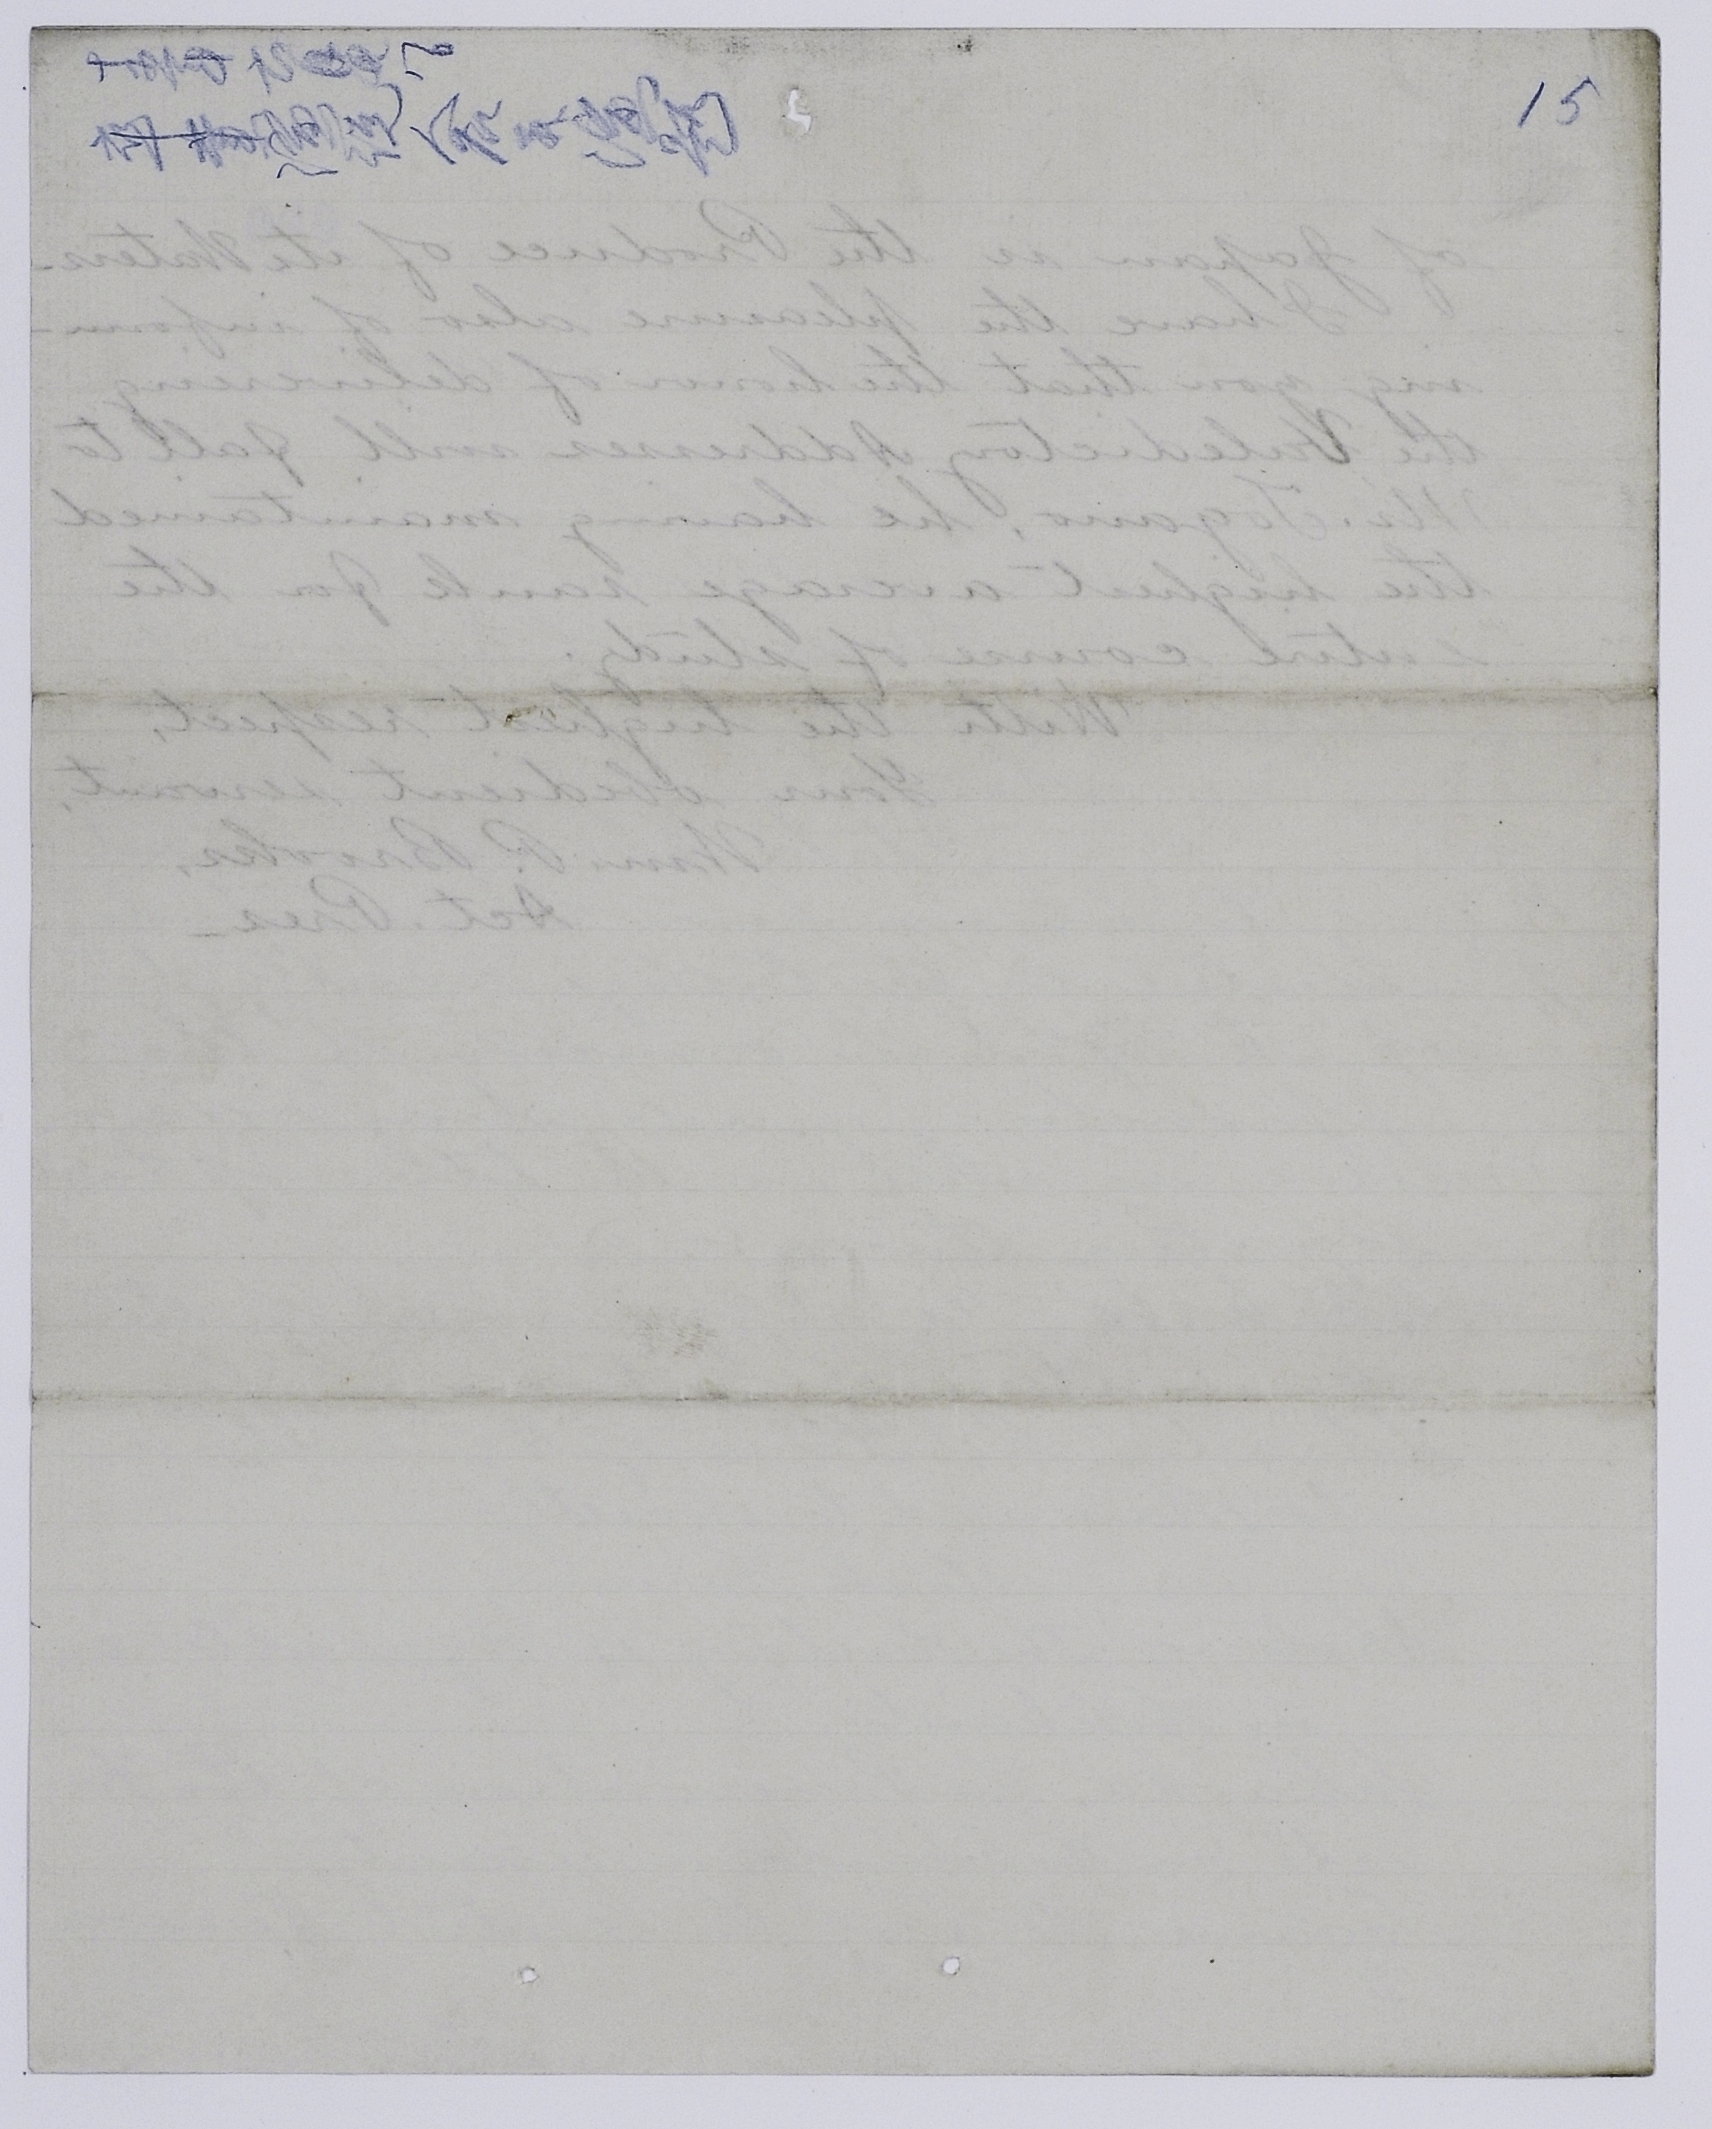 15
of Japan is the Produce of its Waters.
I have the pleasure also of inform-
ing you that the honor of delivering
the Valedictory Addresses will fall to
Mr. Togano, he having maintained
the highest average rank for the
entire course of study.
With the highest respect,
Your obedient servant,
Wm. P. Brooks,
Act. Pres.